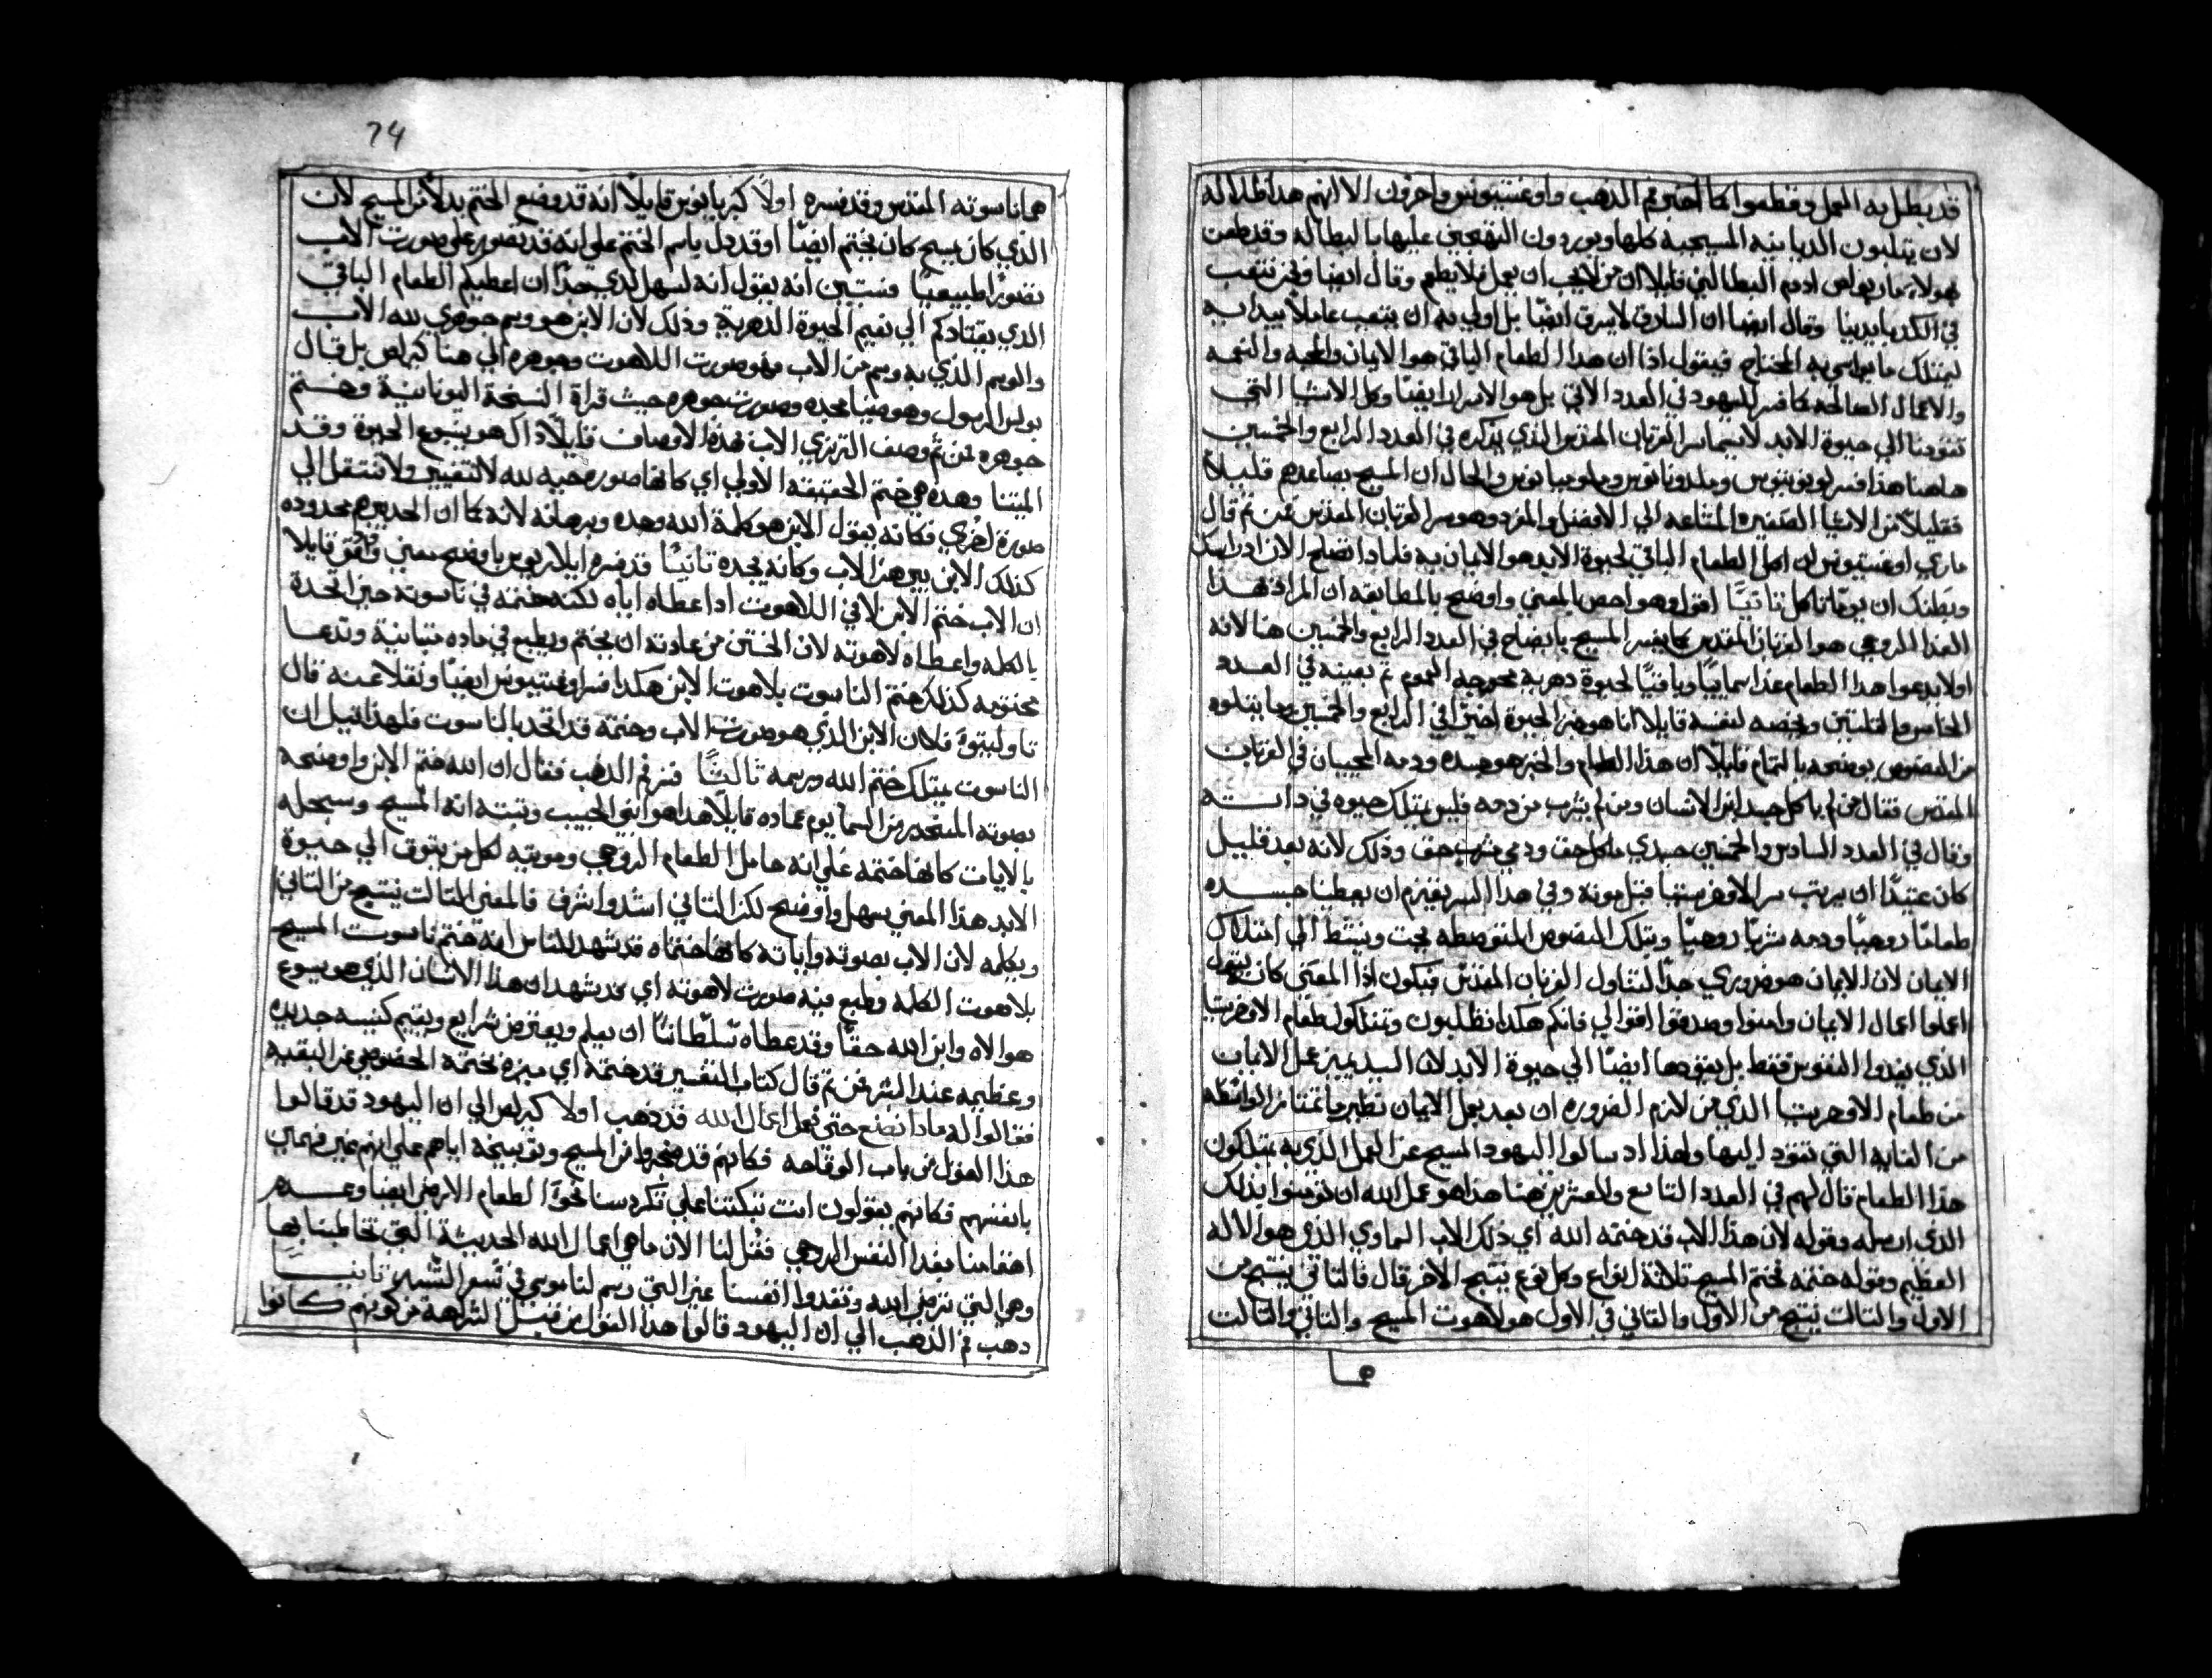 قد بطل به العمل وقطعوا كما اخبر فم الذهب واوغسطينوس واخرون الا انهم هذا
لان يتلبون الديانيه المسيحيه كلها ويوردون التهجين عليها بالبطاله وقد طعن
بهولاء مار بولص ادوم البطالين قايلا ان من لا يحب ان يعمل فلا يطعم وقال ايضا ونحن نتعب
في الكد بايدينا وقال ايضا ان السارق لا يسرق ايضا بل اولي به ان يتعب عاملا بيدايه
ليمتلك ما يواسي به المحتاج فيقول اذا ان هذا الطعام الباقي هو الايمان والمحبه والنعمه
والاعمال الصالحه كما فسر لليهود في العدد الاتي بل هو الاسرار ايضا وكل الاشيا التي
تقودنا الي حيوة الابد لاسيما سر القربان المقدس الذي يذكره في العدد الرابع والخمسين
هاهنا هذا فسر والحال ان المسيح يصاعدهم قليلا
فقليلا من الاشيا الصغيره المشاعه الي الافضل والمفرد وهو سر القربان المقدس فمن ثم قال
ماري اوغسطينوس ان اكل الطعام الباقي لحيوة الابد هو الايمان به فلماذا تصلح الان
وبطنك ان يوماتا كل ثانيا اقول وهو احص بالمعني واوضح بالمطابقه ان المراد بهذا
الغذا الروحي هو القربان المقدس كما يفسر المسيح بايضاح في العدد الرابع والخمسين هنا لانه
اولا يدعوا هذا الطعام غذا سماييا وباقيا لحيوة دهرية العموم ثم بعينه في العدد
الخامس والثلثين ويخصه لنفسه قايلا انا هو خبز الحيوة اخيرا في الرابع والخمسين وما يتلوه
من النصوص يوضحه بالتمام قايلا ان هذا الطعام والخبز هو جسده ودمه المحييان في القربان
المقدس فقال من لم ياكل جسد ابن الانسان ومن لم يشرب من دمه فليس يمتلك حيوه في ذاته
وقال في العدد السادس والخمسين جسدي ماكل حق ودمي مشرب حق وذلك لانه بعد قليل
كان عتيدا ان يرتب سر الافخرستيا قبل موته وفي هذا السر يعتزم ان يعطينا جسده
طعاما روحيا ودمه شربا روحيا وبتلك النصوص المتوسطه يحث وينشط الي امتلاك
الايمان لان الايمان هو ضروري جدا لتناول القربان المقدس فيكون اذا المعني كانه يقول
اعملوا اعمال الايمان وامنوا وصدقوا اقوالي فانكم هكذا تطلبون وتمتلكوا طعام الافخرستيا
الذي يغدوا النفوس فقط بل يقودها ايضا الي حيوة الابد لان السيد يميز عمل الايمان
من طعام الافخرستيا الذي من لازم الضروره ان بعد يعمل الايمان نظير ما تمتنا من الواسطه
من الغايه التي تقود اليها ولهذا اد سالوا اليهود المسيح عن العمل الذي به يمتلكون
هذا الطعام قال لهم في العدد التاسع والعشرين هنا هذا هو عمل الله ان تومنوا بذلك
الذي ارسله وقوله لان هذا الاب قد ختمه الله اي ذلك الاب السماوي الذي هو الاله
العظيم وقوله ختمه تختم المسيح ثلاثة انواع وكل نوع ينتج الاخر قال فالثاني ينتج من
الاول والثالث ينتج من الاول والثاني في الاول هو لاهوت المسيح والثاني والثالث
هما
74
هما ناسوته المقدس وقد فسره اولا كبريانوس قايلا انه قد وضع الختم بدلا من المسيح لان
الذي كان مسيح كان يختم ايضا او قد دل باسم الختم علي انه قد تصور علي صورت الاب
تصورا طبيعيا فستبين انه يقول انه لسهل لدي جدا ان اعطيكم الطعام الباقي
الذي يقتادكم الي نعيم الحيوة الدهرية وذلك لان الابن هو وسم جوهري لله الاب
والوسم الذي به وسم من الاب هو صورت اللاهوت وجوهره الي هنا كيرلص بل قال
بولس الرسول وهو ضيا مجده وصورت جوهره حيث قراة النسخة اليونانية وختم
جوهره فمن ثم وصف الترتزي الاب بهذه الاوصاف قايلا ذاك هو ينبوع الحيوة وقد
الميتنا وهذه هي ختم الحقيقه الاولي اي كانها صوره حيه لله لا تتغير ولا تنتقل الي
صورة اخري فكانه يقول الابن هو كلمة الله وحده وبرهانه لانه كما ان الحد يبرهن محدوده
كذلك الابن يبرهن الاب وكانه يحده ثانيا قد فسره ايلاريوس باوضح معني واوفق قايلا
ان الاب ختم الابن لا في اللاهوت اذ اعطاه اباه لكنه ختمه في ناسوته حين اتحدة
بالكلمه واعطاه لاهوته لان الختن من عادته ان يختم ويطبع في ماده متباينة وتدعا
مختومه كذلك ختم الناسوت بلاهوت الابن هكذا فسر اوغسطينوس ايضا ونقلا عنه قال
فلان الابن الذي هو صورت الاب وختمه قد اتحد بالناسوت فلهذا قيل ان
الناسوت يمتلك ختم الله ورسمه ثالثا فسر فم الذهب فقال ان الله ختم الابن واوضحه
بصوته المنحدر من السما يوم عماده قايلا هذا هو ابني الحبيب وثبته انه المسيح وسجله
بالايات كانها ختمه علي انه حامل الطعام الروحي وموتيه لكل من يتوق الي حيوة
الابد هذا المعني سهل واوضح لكن الثاني اشد واشرف فالمعني الثالث ينتج من الثاني
ويكلمه لان الاب بصوته واياته كانها ختماه قد شهد للناس انه ختم ناسوت المسيح
بلاهوت الكلمه وطبع فيه صورت لاهوته اي قد شهد ان هذا الانسان الذي هو يسوع
هو الاه وابن الله حقا وقد اعطاه سلطانا ان يعلم ويفترض شرايع ويقيم كنيسه جديده
وعظيمه عند البشر فمن ثم قال كتاب التفسير قد ختمه اي ميزه بختمه الخصوصي عن البقيه
فقالوا له ماذا نصنع حتي نعمل اعمال الله قد ذهب اولا كيرلص الي ان اليهود قد قالوا
هذا القول من باب الوقاحه فكانهم قد ضجروا من المسيح وتوبيخه اياهم علي انهم غير فهمين
بانفسهم فكانهم يقولون انت تبكتنا علي تكردسنا نحو الطعام الارضي ايضا وعدم
اهتمامنا بغدا النفس الروحي فقل لنا الان ما هي اعمال الله الحديثة التي تخاطبنا بها
وهي التي ترضي الله وتغدوا انفسنا غير التي رسم لنا موسي في سفر التثنيه ثانيا
ذهب فم الذهب الي ان اليهود قالوا هذا القول من قبل الشراهة من كونهم كانوا